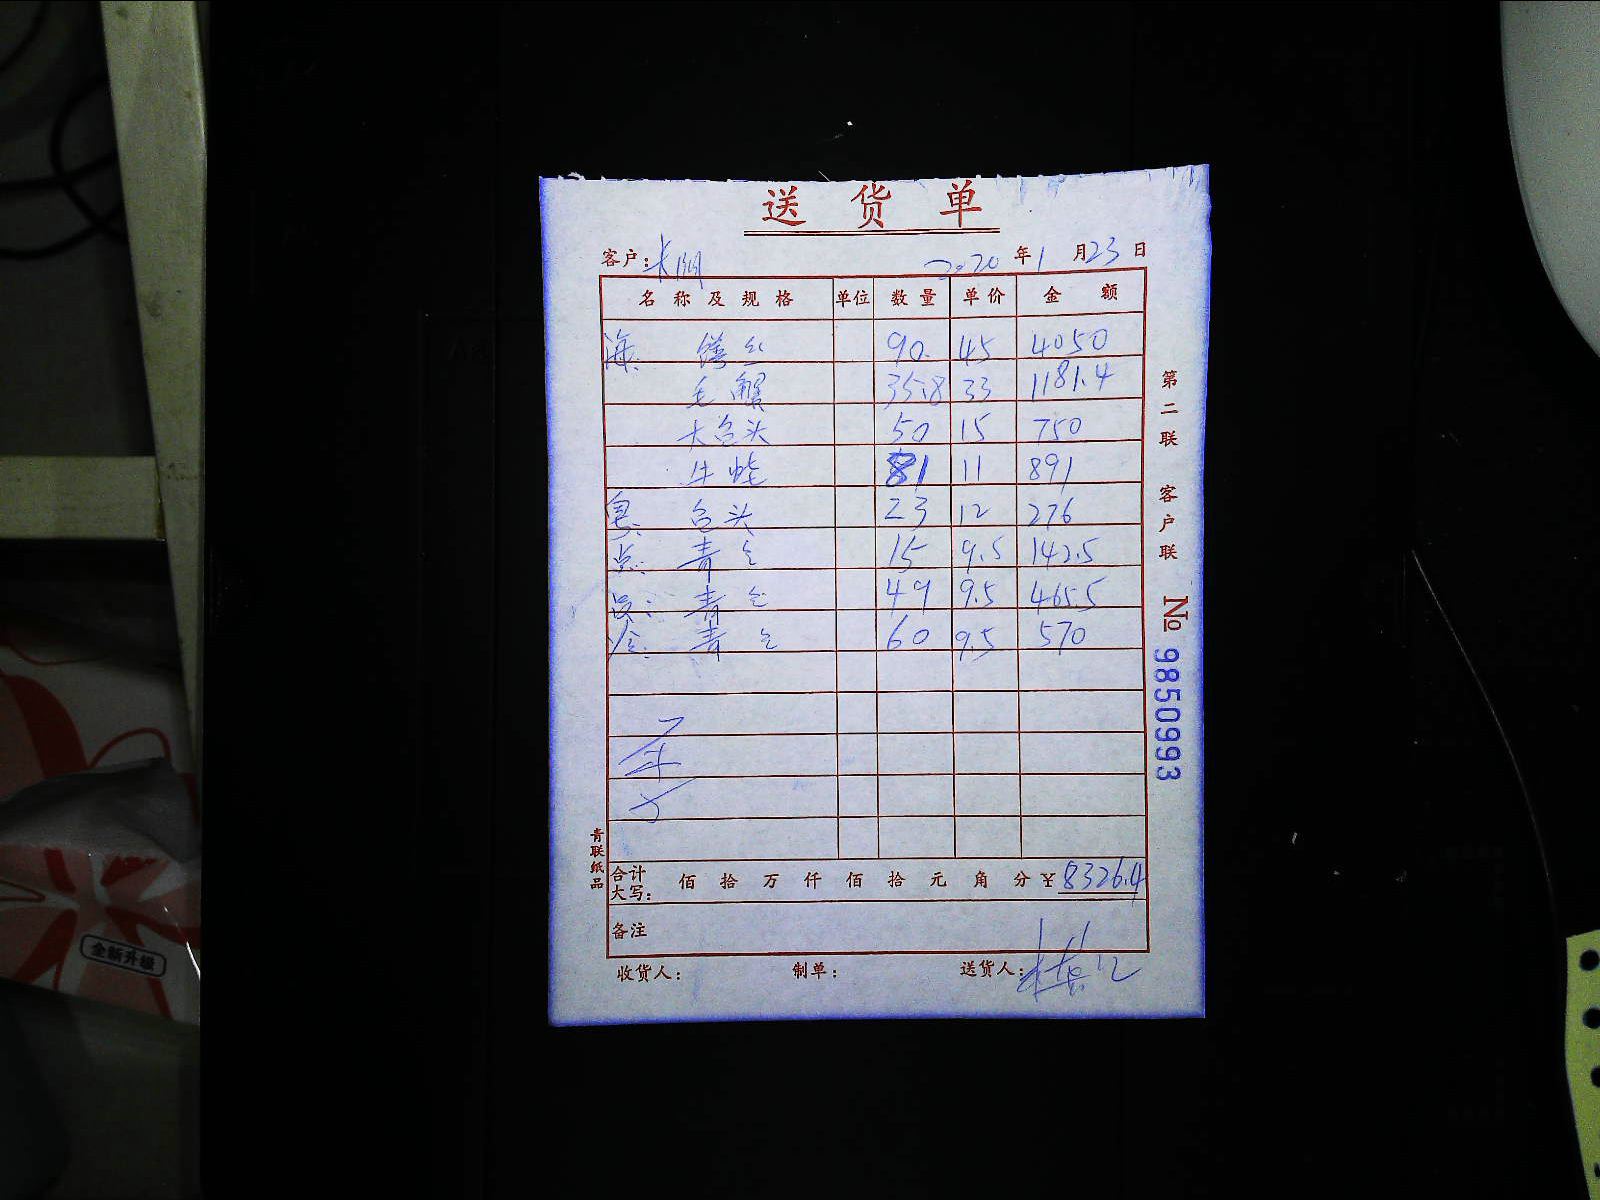 送货单
客户: 2020年1月23日
名称及规格 单位 数量 单价 金额
海: 丝 90. 45 4050
毛蟹 35.8 33 1181.4
大包头 50 15 750
牛蛙 81 11 891
包头 23 12 276
点: 青仝 15 9.5 142.5
青仝 49 9.5 465.5
冷: 青仝 60 9.5 570
合计大写: 佰拾万仟佰拾元角分¥8326.4
备注
收货人: 制单: 送货人:
第二联 客户联 №9850993
青联纸品
全新升级